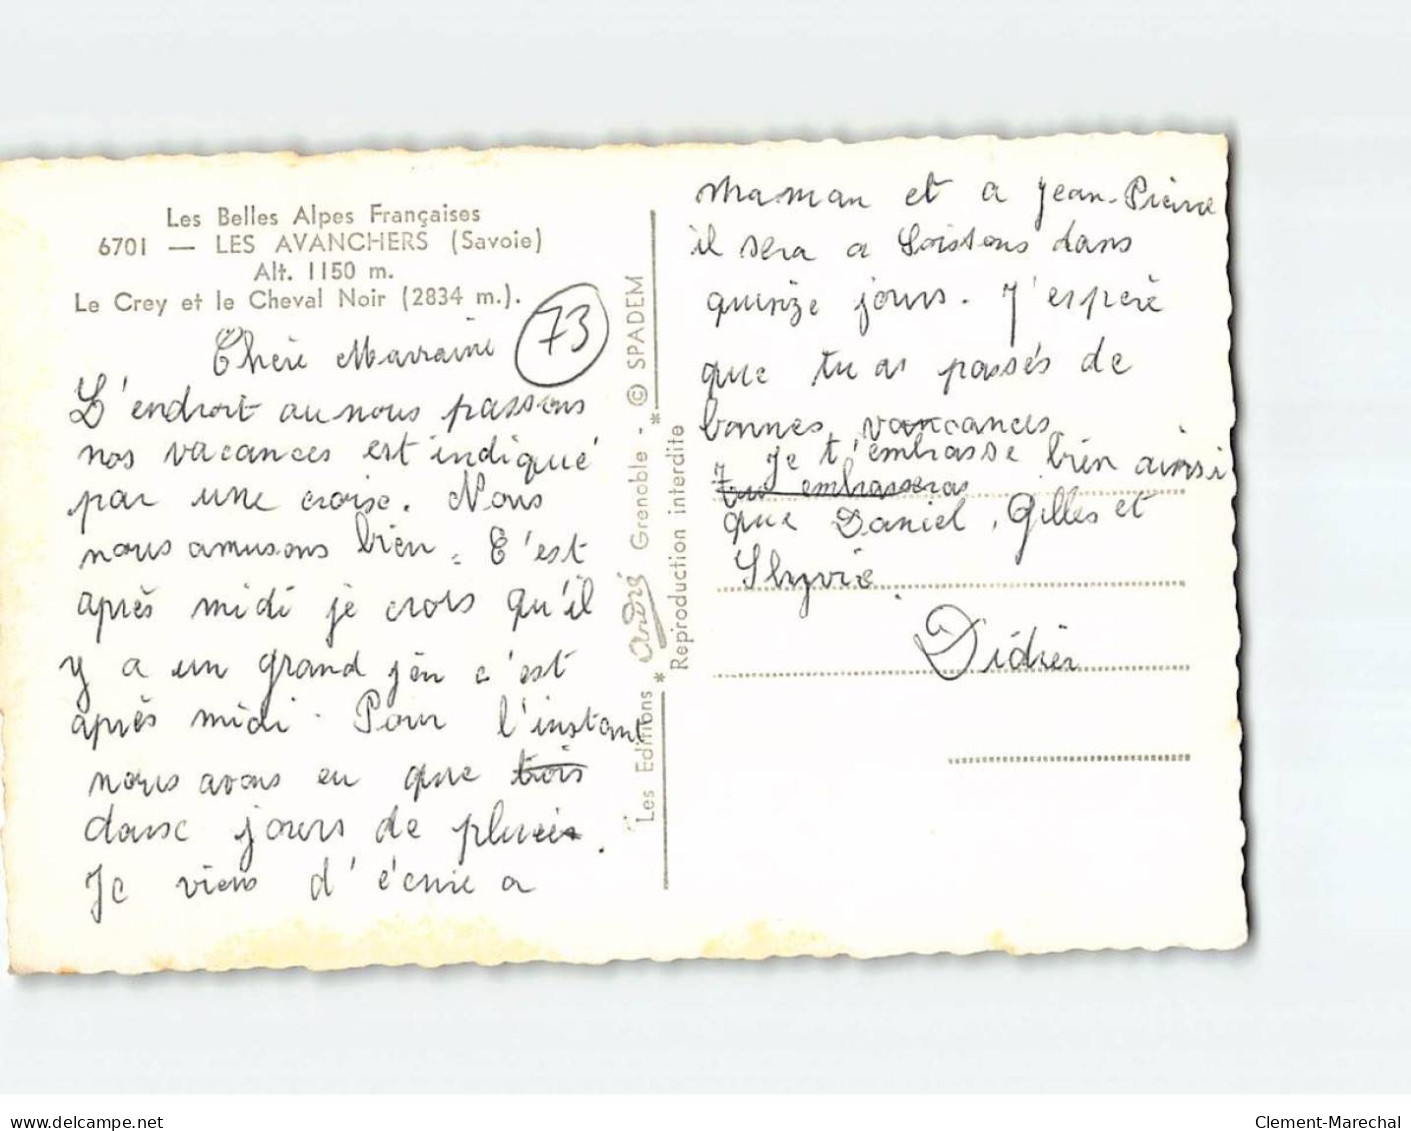 Les Belles Alpes Françaises
6701 — LES AVANCHERS (Savoie)
Alt. 1150 m.
Le Crey et le Cheval Noir (2834 m.).
73
Chère Marraine
L'endroit au nous passons
nos vacances est indiqué
par une croise. Nous
nous amusons bien. C'est
après midi je crois qu'il
y a un grand jeu c'est
après midi. Pour l'instant
nous avons eu que trois
dans jours de pluie.
Je viens d'écrire a
Les Editions * André Grenoble - * © SPADEM
Reproduction interdite
maman et a Jean-Pierre
il sera a Soistons dans
quinze jours. J'esperè
que tu as passés de
bonnes vancances
Je t'embrasse bien ainsi
Tu embrasseras
que Daniel, Gilles et
Slyvie.
Didier
delcampe.net
Clement-Marechal